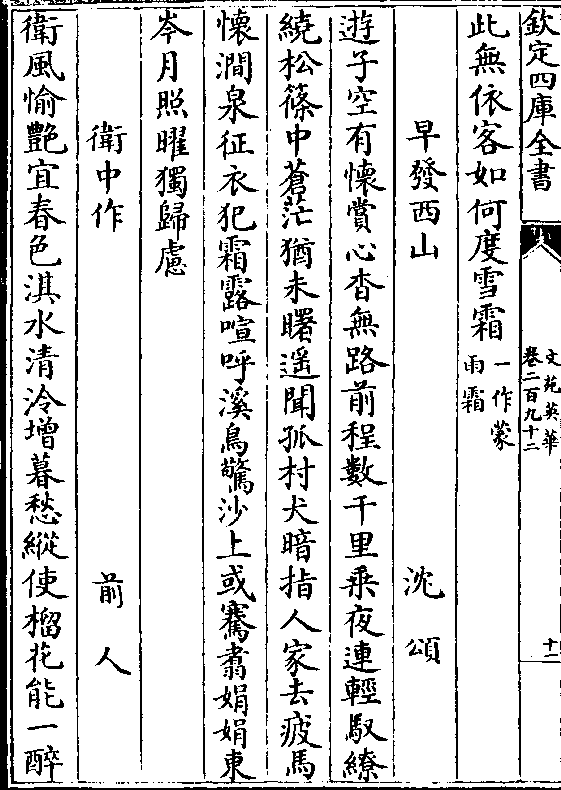 欽定四庫全書
文苑英華
卷二百九十二
十二
此無依客如何度雪霜一作蒙
雨霜
早發西山　沈頌
遊子空有懷賞心杳無路前程數千里乗夜連輕馭繚
繞松篠中蒼茫猶未曙遥聞孤村犬暗指人家去疲馬
懷澗泉征衣犯霜露喧呼溪鳥驚沙上或騫翥娟娟東
岑月照曜獨歸慮
衛中作　前人
衛風愉艷宜春色淇水清泠增暮愁縱使榴花能一醉